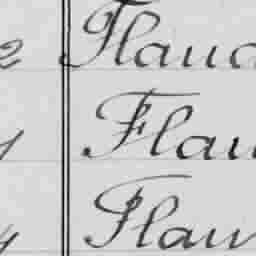 2 Flaud
y Flau
y Flau